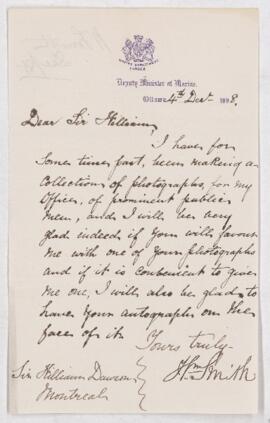 Deputy Minister of Marine.
Ottawa 4th Decr 1898.
Dear Sir William,
I have for
some time past, been making a
Collection of photographs, for my
Office, of prominent public
men, and I will be very
glad indeed if you will favour
me with one of your photographs
and if it is convenient to give
me one, I will also be glad to
have your autograph on the
face of it.
Yours truly
Wm Smith
Sir William Dawson
Montreal